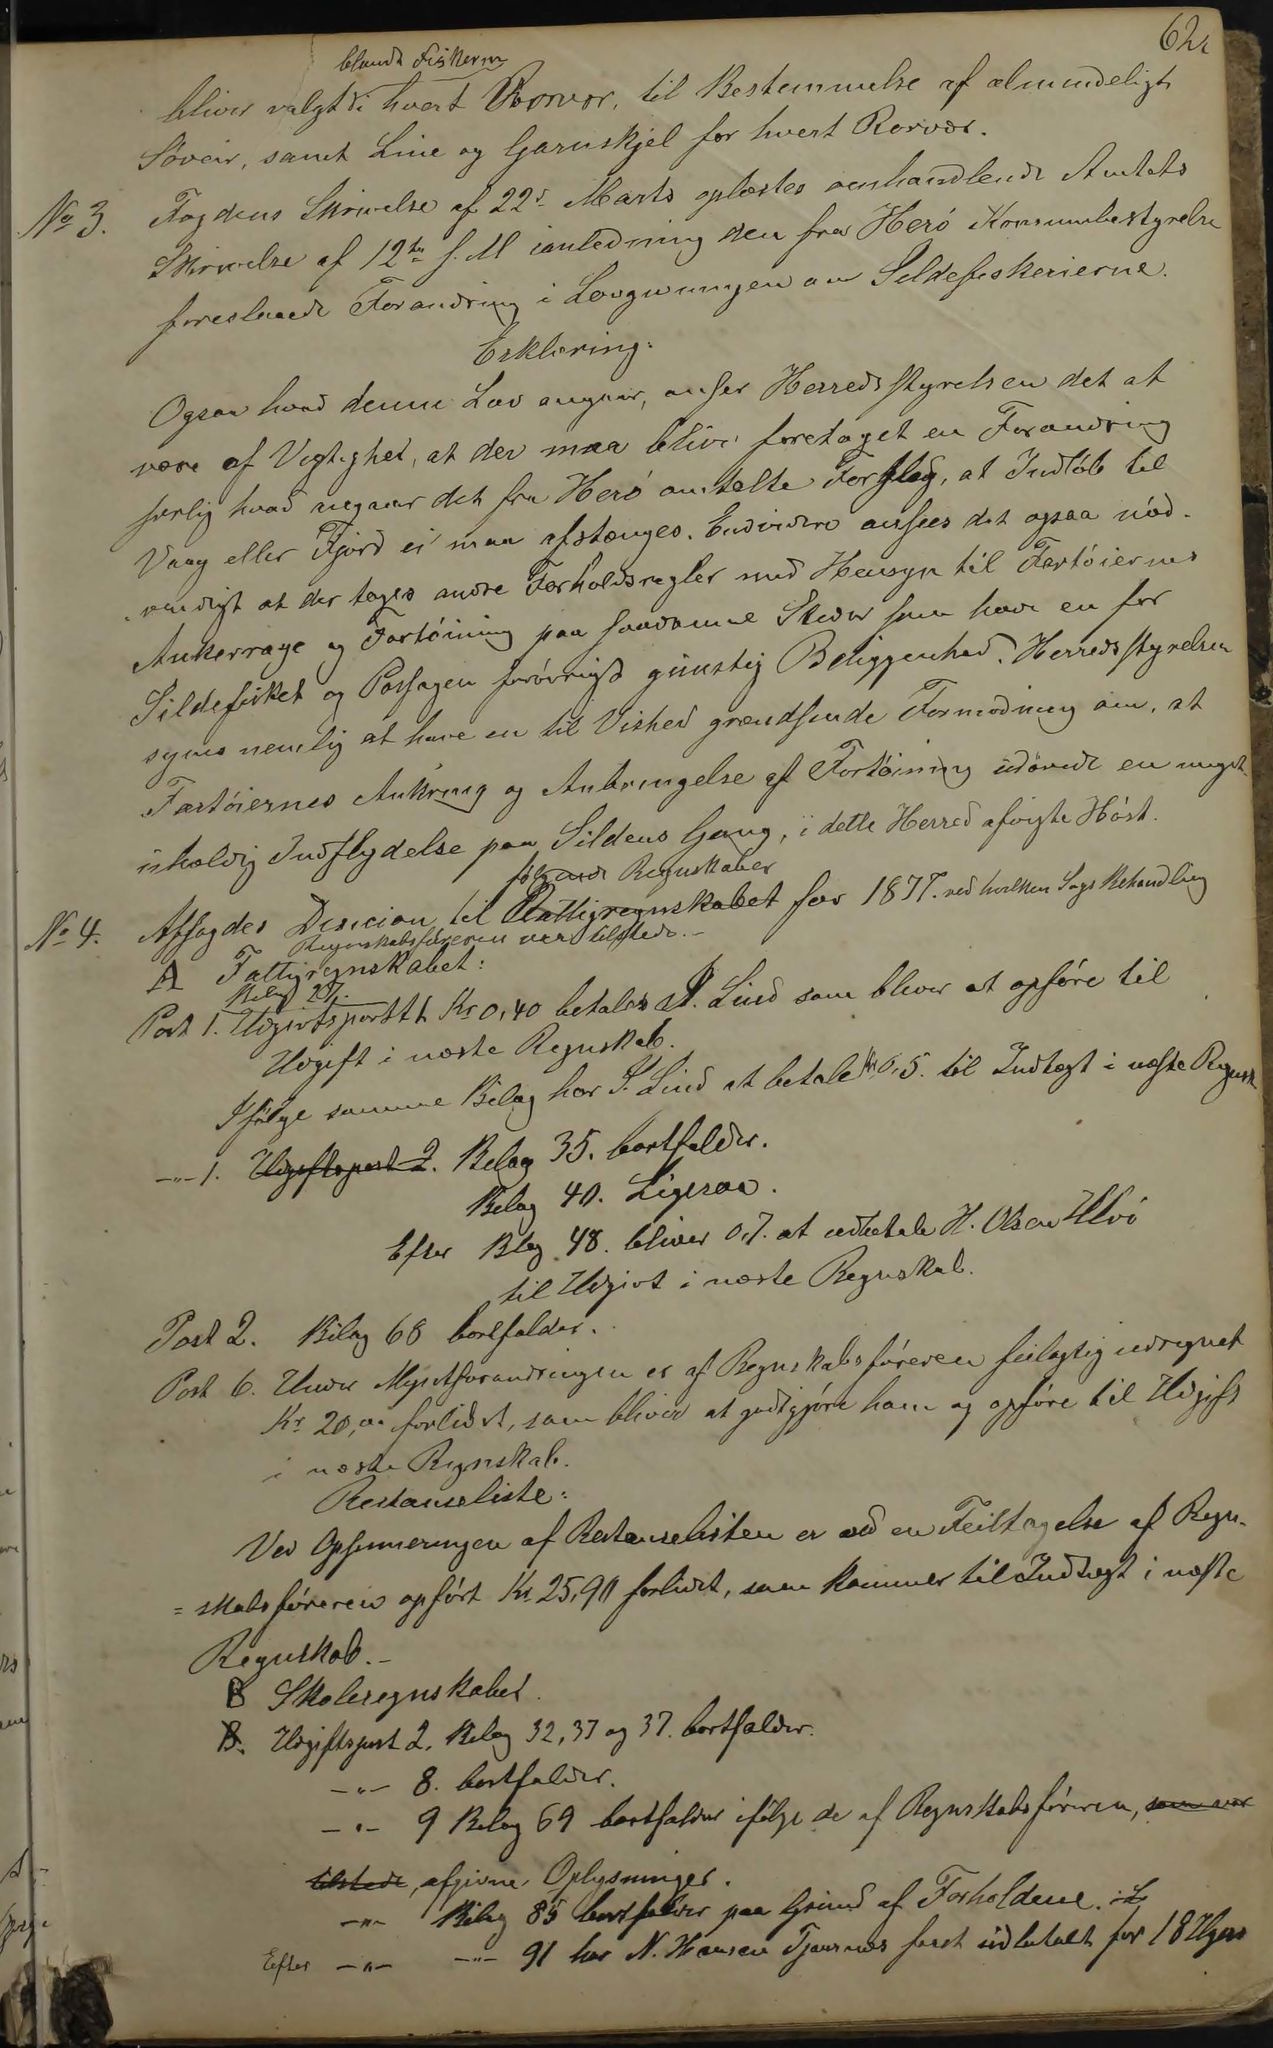 62r
blandt Fiskerne
bliver valgt i hvert Rorvær, til Bestemmelse af almindeligt
Søveir, samt Line og Garnskjel for hvert Rorvær.
No 3. Fogdens Skrivelse af 22d Marts oplæstes omhandlende Amtets
Skrivelse af 12te s. M i anledning den fra Herø Kommunebestyrelse
foreslaaede Forandring i Lovgivningen om Sildefiskerierne.
Erklæring:
Ogsaa hvad denne Lov angaar, anser Herredsstyrelsen det at
være af Vigtighed, at der maa blive foretaget en Forandring
særlig hvad angaar det fra Herø omtalte Forslag, at Indløb til
Vaag eller Fjord ei maa afstænges. Endvidere ansees det ogsaa nød-
vendigt at der tages andre Forholdsregler med Hensyn til Fartøiernes
Ankerrage og Fortøining paa saadanne Steder som have en for
Sildefisket og Passagen forøvrigt günstig Beliggenhed. Herredsstyrelsen
synes nemlig at have en til Vished grændsende Formodning om, at
Fartøiernes Ankring og Anbringelse af Fortøining udøvede en meget
üheldig Indflydelse paa Sildens Gang, i dette Herred afvigte Høst.
følgende Regnskaber
No 4. Afsagdes Desicion til Fattigregnskabet for 1877. ved hvilken Sags Behandling
Regnskabsføreren var tilstede.-
A Fattigregnskabet:
Bilag 27.
Post 1. Udgivtspost Kr 0,40 betales J. Lind som bliver at opføre til
Udgift i næste Regnskab.
Ifølge samme Bilag har J. Lind at betale Kr 0,5. til Indtægt i næste Regnsk
-"- 1. Udgiftspost 2. Bilag 35. bortfalder.
Bilag 40. Ligesaa.
Efter Blag 48. bliver 0,7. at udbetale H. Olsen
til Udgivt i næste Regnskab.
Post 2. Bilag 68 bortfalder.
Post 6. Under Myntforandringen er af Regnskabsføreren feilagtig udregnet
Kr 20,00 forlidet, som bliver at godtgjøre ham og opføre til Udgift
i næste Regnskab.
Restanseliste:
Ved Opsummeringen af Restanselisten er ved en Feiltagelse af Regn-
=skabsføreren opført Kr 25,90 forlidet, som kommer til Indtægt i næste
Regnskab.-
B Skoleregnskabet.
B. Udgiftspost 2. Bilag 32, 37 og 37. bortfalder.
-"- 8. bortfalder.
-"- 9 Bilag 69 bortfalder ifølge de af Regnskabsføreren, som var
tilstede, afgivne Oplysninger.
-"- Bilag 85 bortfalder paa Grund af Forholdene.
Efter -"- -"- 91 har N. Hansen Tjøsnes faaet üdbetalt for 18 Uger